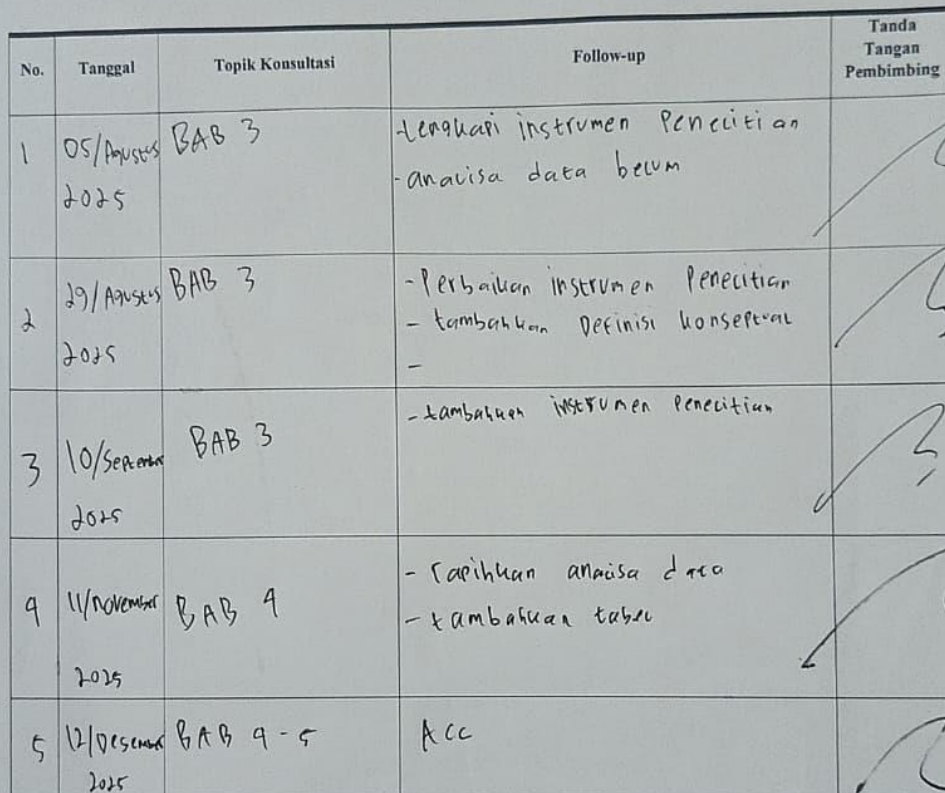 No. Tanggal Topik Konsultasi Follow-up Tanda Tangan Pembimbing
1 05/Agustus 2025 BAB 3 -lengkapi instrumen Penelitian
-analisa data belum
2 29/Agustus 2025 BAB 3 -Perbaikan instrumen Penelitian
- tambahkan Definisi konseptual
-
3 10/September 2025 BAB 3 -tambahkan instrumen Penelitian
4 11/november 2025 BAB 4 - rapihkan analisa data
- tambahkan tabel
5 12/Desember 2025 BAB 4-5 ACC